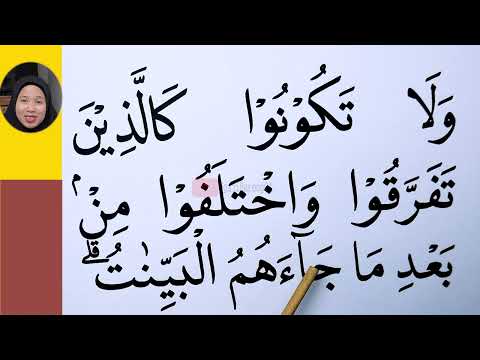 وَلَا تَكُوْنُوْا كَالَّذِيْنَ
تَفَرَّقُوْا وَاخْتَلَفُوْا مِنْۢ
بَعْدِ مَا جَاۤءَهُمُ الْبَيِّنٰتُۗ